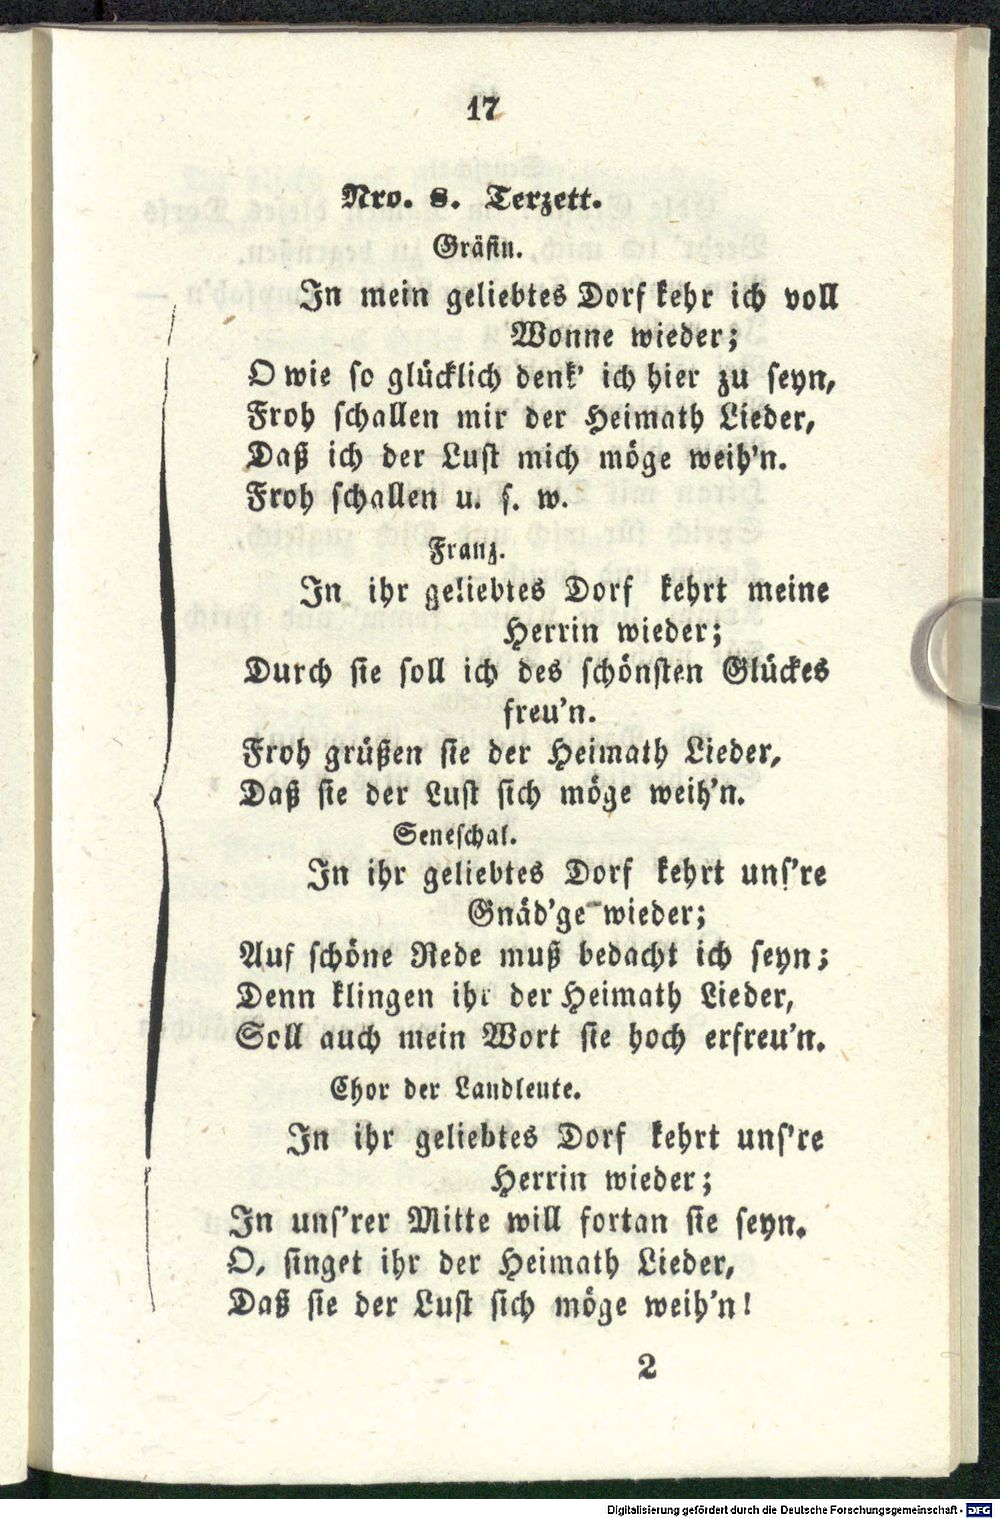 17
Nro. 8. Terzett.
Gräfin.
In mein geliebtes Dorf kehr ich voll
Wonne wieder;
O wie so glücklich denk' ich hier zu seyn,
Froh schallen mir der Heimath Lieder,
Daß ich der Lust mich möge weih'n.
Froh schallen u. s. w.
Franz.
In ihr geliebtes Dorf kehrt meine
Herrin wieder;
Durch sie soll ich des schönsten Glückes
freu'n.
Froh grüßen sie der Heimath Lieder,
Daß sie der Lust sich möge weih'n.
Seneschal.
In ihr geliebtes Dorf kehrt uns're
Gnäd'ge wieder;
Auf schöne Rede muß bedacht ich seyn;
Denn klingen ihr der Heimath Lieder,
Soll auch mein Wort sie hoch erfreu'n.
Chor der Landleute.
In ihr geliebtes Dorf kehrt uns're
Herrin wieder;
In uns'rer Mitte will fortan sie seyn.
O, singet ihr der Heimath Lieder,
Daß sie der Lust sich möge weih'n!
2
Digitalisierung gefördert durch die Deutsche Forschungsgemeinschaft - DFG